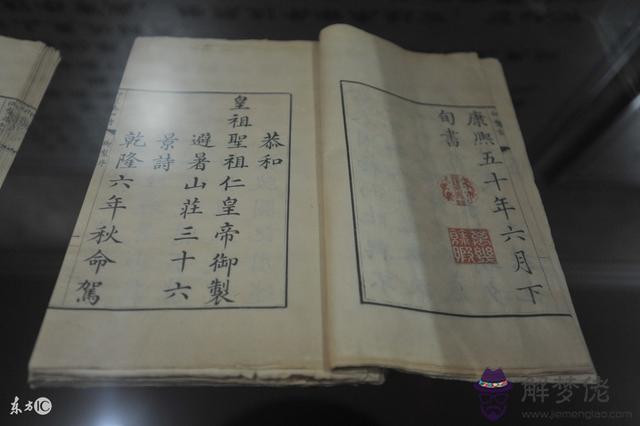 康熙五十年六月下
旬書
恭和
皇祖聖祖仁皇帝御製
避暑山莊三十六
景詩
乾隆六年秋命駕
东方IC
解梦佬
www.jiemenglao.com